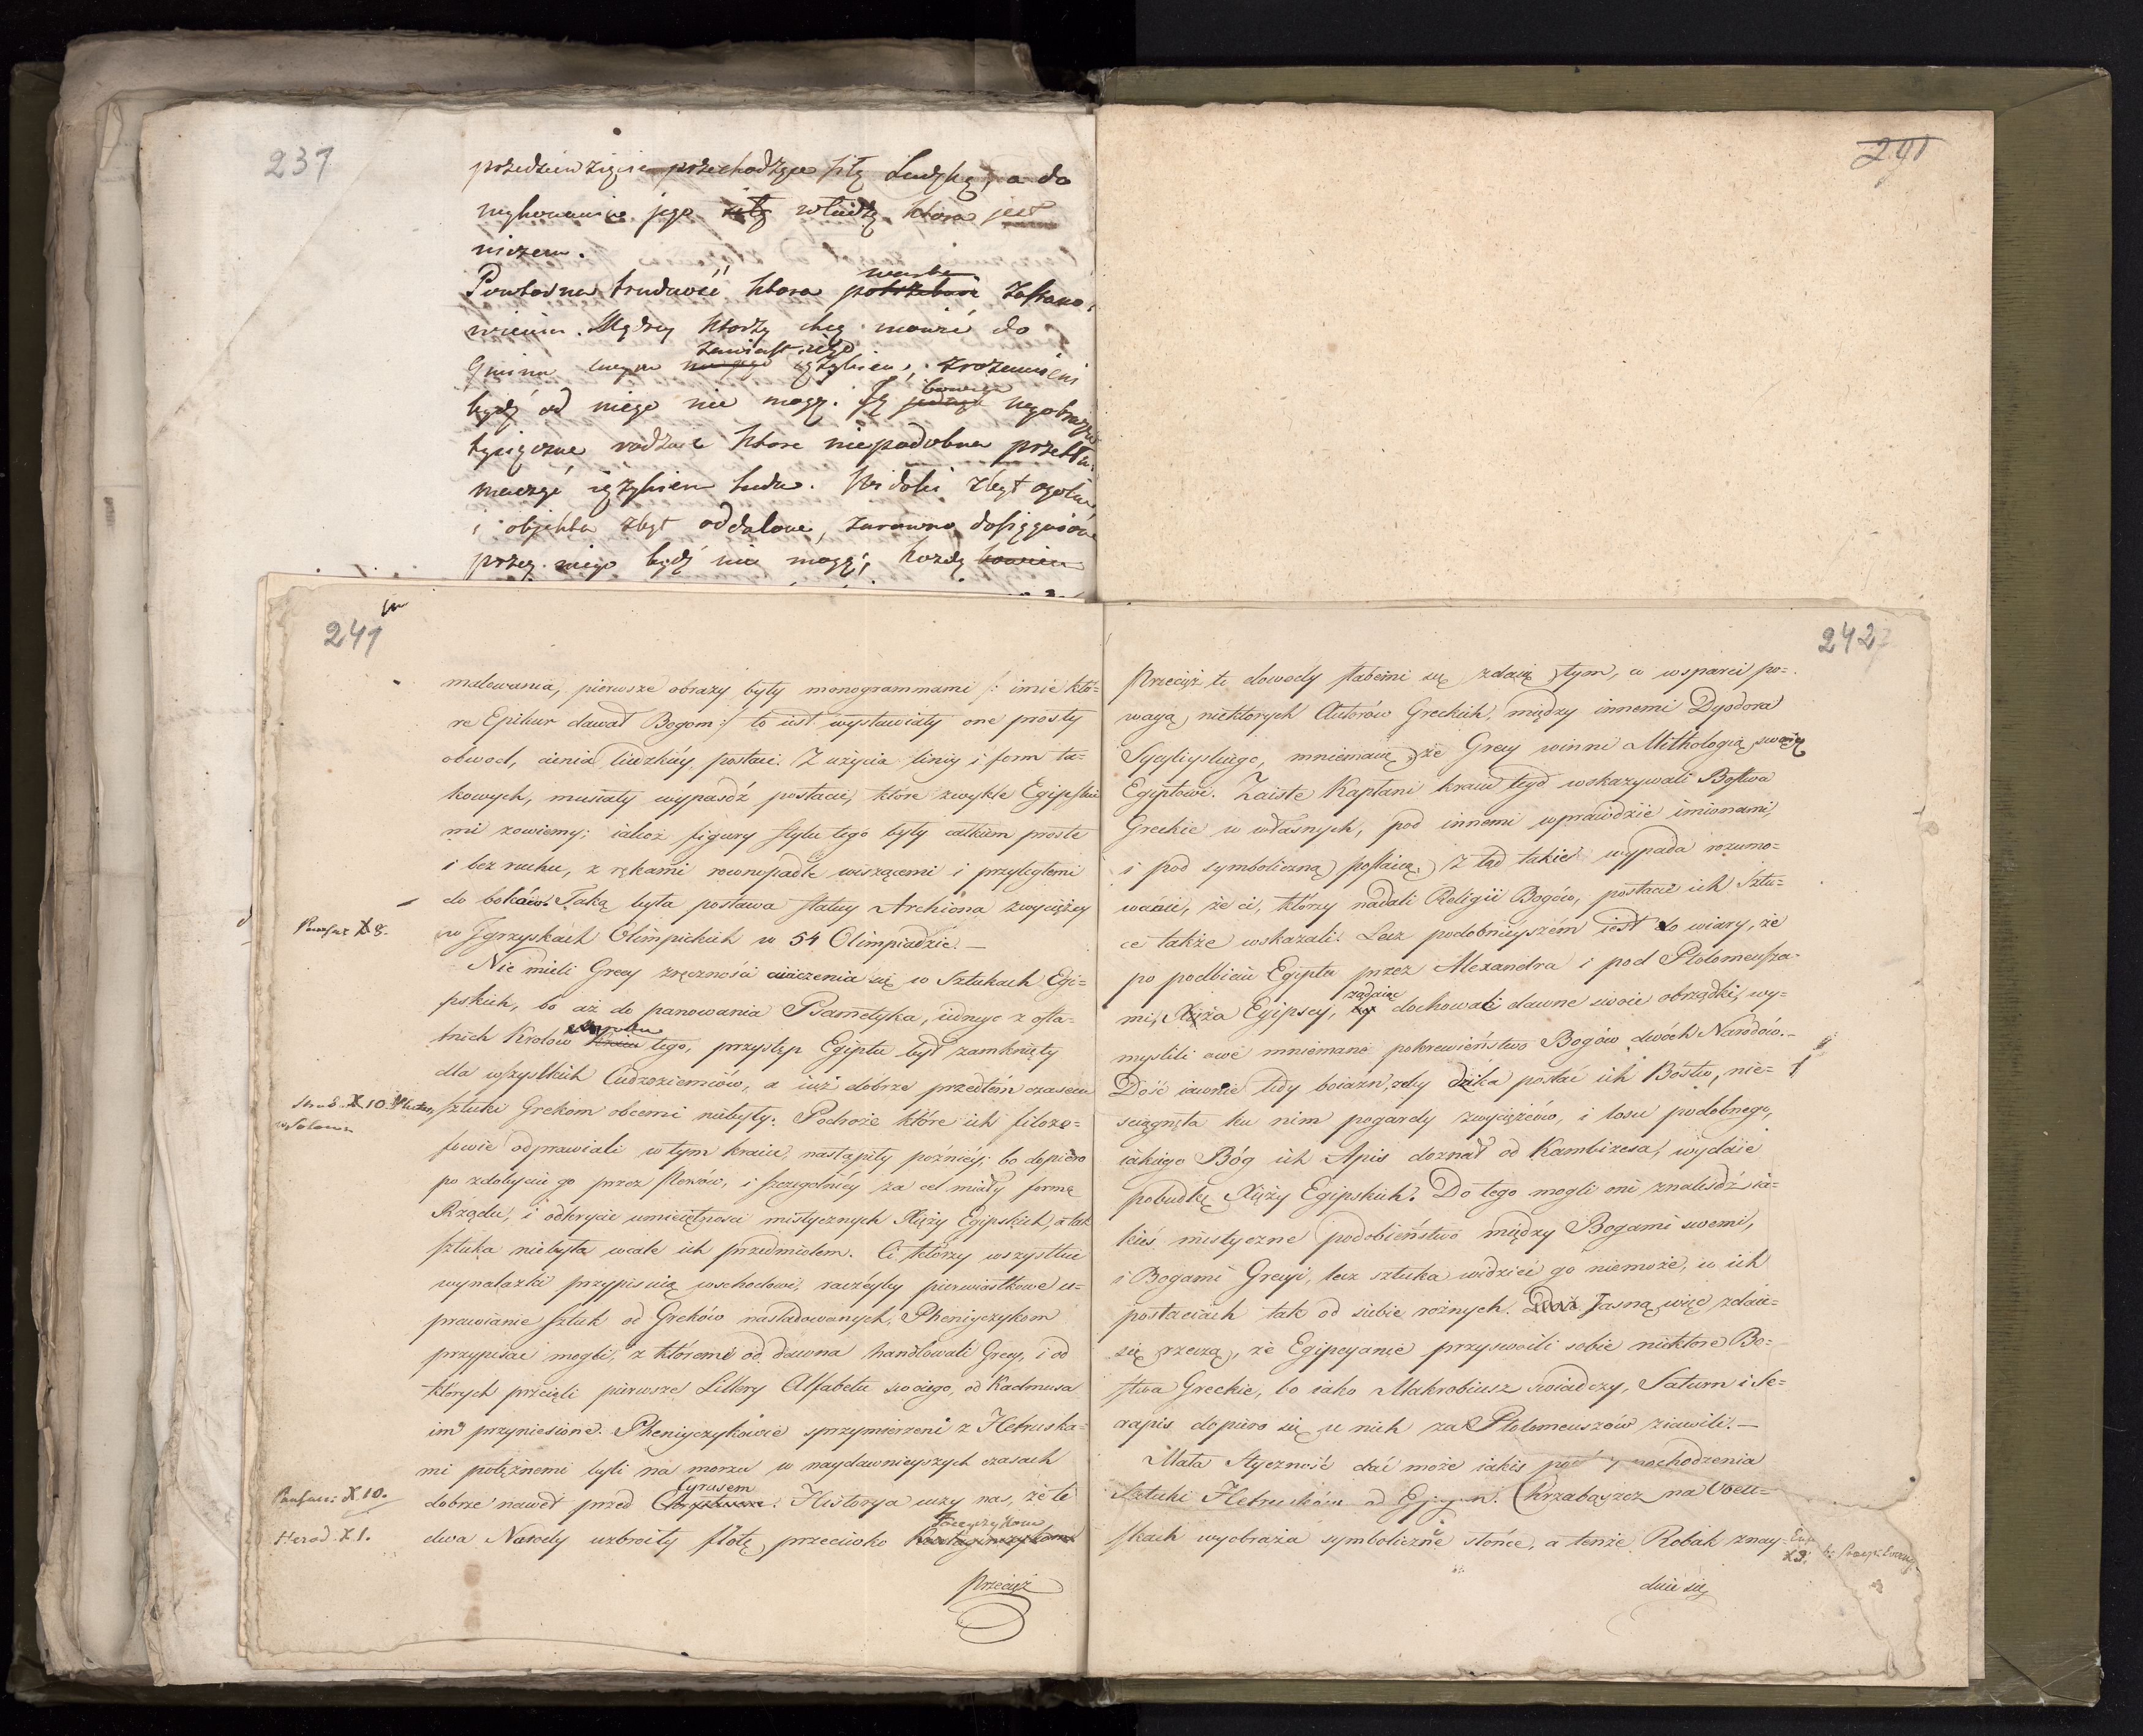 237
przedsiewzięcia przechodzące siłę Ludzką, a do
wykonania jego siłę władzę ktora jest
niczem.
warta
Powtorna trudność ktora potrzebuie zastano-
wienia. Mędrcy ktorzy chcą mowić do
zamiast iego
Gminu swym na jego ięzykiem, zrozumieni
bowiem
bydź od niego nie mogą. Są jednak wyobrażeń
tysiączne rodzaie ktore niepodobna przetłu-
maczyć ięzykiem ludu. Widoki zbyt ogolne
i objekta zbyt oddalone, zarowno dosięgnione
przez niego bydź nie mogą; każdy bowiem
241
malowania, pierwsze obrazy były monogrammami /: imie któ-
re Epikur dawał Bogom :/ to iest wystawiały one prosty
obwod, cienia ludzkiéy postaci. Z użycia liniy i form ta-
kowych, musiały wypasdź postacie, które zwykle Egipskie-
mi zowiemy; iakoż figury stylu tego były całkiem proste
i bez ruchu, z rękami rownopadle wiszącemi i przyległemi
do boków. Taką była postawa statuy Archiona zwyciężcy
Pausan X 8.
w Jgrzyskach Olimpickich w 54 Olimpiadzie. —
Nie mieli Grecy zręczności ćwiczenia się w Sztukach Egi-
pskich, bo aż do panowania Psametyka, iednego z osta-
tnich Krolow Kraiu tego, przystęp Egiptu był zamknięty
dla wszystkich Cudzoziemców, a iuż dobrze przedtém czasem
Strab. X 10. Plutar.
w Solonie
sztuki Grekom obcemi niebyły. Podroże które ich filozo-
fowie odprawiali w tym kraiu, nastąpiły pozniéy; bo dopiero
po zdobyciu go przez Persów, i szczegolniéy za cel miały formę
Rządu, i odkrycie umieiętności mistycznych Xięży Egipskich, a tak
sztuka niebyła wcale ich przedmiotem. Ci którzy wszystkie
wynalazki przypisuią wschodowi, raczéyby pierwiastkowe u-
prawianie sztuk od Greków nasladowanych, Pheniyczykom
przypisać mogli, z któremi od dawna handlowali Grecy, i od
których przeięli pierwsze Littery Alfabetu swoiego, od Kadmusa
im przyniesione. Pheniyczykowie sprzymierzeni z Hetruska-
mi potężnemi byli na morzu w naydawnieyszych czasach
Pausan: X 10.
Cyrusem
dobrze nawet przed Chrystusem. Historya uczy nas, że te
Foceyczykom
Herod. X 1.
dwa Narody uzbroiły flotę przeciwko Kartagińczykom
Przecięż
241
2427
Przecięż te dowody słabemi się zdaią tym, co wsparci po-
wagą niektorych Autorów Greckich, między innemi Dyodora
Sycyliyskiego, mniemaią, że Grecy winni Mithologią swoię
Egiptowi. Zaiste Kapłani kraiu tego wskazywali Bostwa
Greckie w własnych, pod innemi wprawdzie imionami,
i pod symboliczną postacią. Z tąd takież wypada rozumo-
wanie, że ci, którzy nadali Religii Bogów, postacie ich Sztu-
ce także wskazali. Lecz podobnieyszém iest do wiary, że
po podbiciu Egiptu przez Alexandra i pod Ptolomeusza-
żądaiąc
mi, Xięża Egipscy, by dochowali dawne swoie obrządki, wy-
myslili owe mniemane pokrewieństwo Bogów dwóch Narodów. —
Dość iawnie tedy boiaźn, żeby dzika postać ich Bóstw, nie-
sciągnęła ku nim pogardy zwyciężców, i losu podobnego,
iakiego Bóg ich Apis doznał od Kambizesa, wydaie
pobudkę Xięży Egipskich. Do tego mogli oni znalesdź ia-
kieś mistyczne podobieństwo między Bogami swemi,
i Bogami Grecyi, lecz sztuka widzieć go niemoże, w ich
postaciach tak od siebie rożnych. Jasną więc zdaie-
się rzeczą, że Egipcyanie przyswoili sobie niektore Bo-
stwa Greckie, bo iako Makrobiusz swiadczy, Saturn i Se-
rapis dopiero się u nich za Ptolomeuszów ziawili. —
Mała styczność dać może iakis pochodzenia
Sztuki Hetrusków od Krzabąszcz na
skach wyobraża symboliczne słońce, a tenże Robak znay-
X 3.
duie się